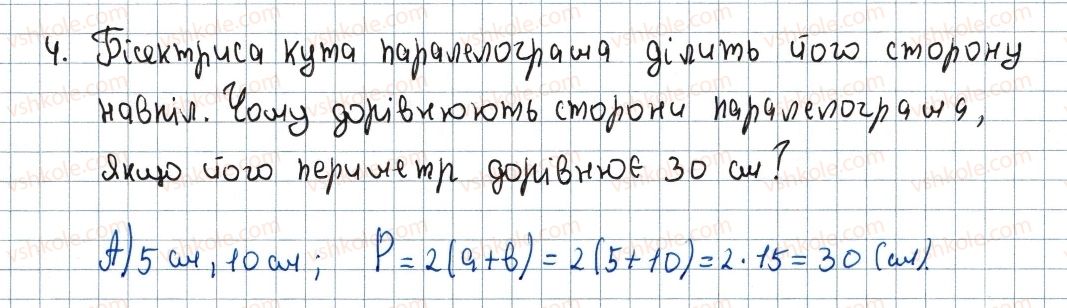 4. Бісектриса кута паралелограма ділить його сторону
навпіл. Чому дорівнюють сторони паралелограма,
якщо його периметр дорівнює 30 см?
А) 5 см, 10 см; P = 2(a+b) = 2(5+10) = 2·15 = 30 (см).